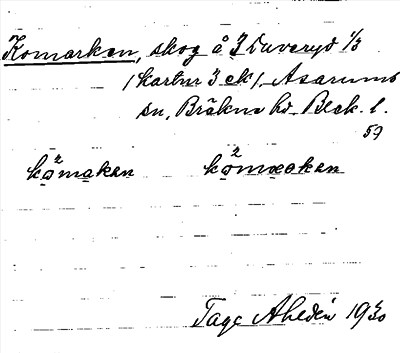 Komarken, skog å 3 Duveryd 1/3
(kartnr 3 ek), Asarums
sn, Bräkne hd. Blek. l.
57
2 2
kömaken kömæoken
Tage Ahldén 1930